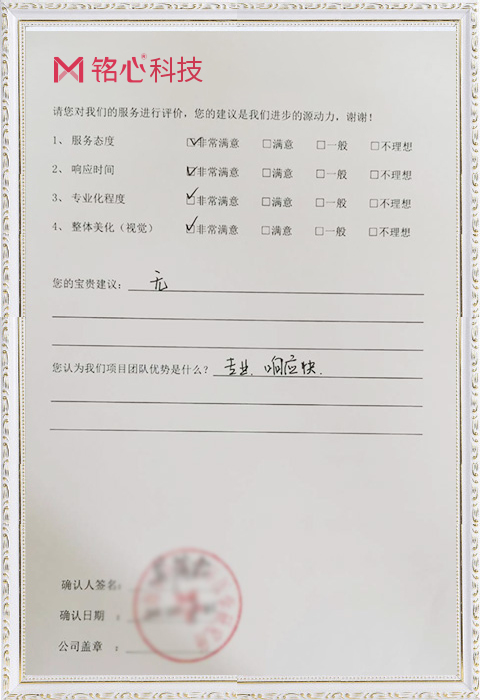 铭心®科技
请您对我们的服务进行评价，您的建议是我们进步的源动力，谢谢！
1、 服务态度 ☑非常满意 □满意 □一般 □不理想
2、 响应时间 ☑非常满意 □满意 □一般 □不理想
3、 专业化程度 ☑非常满意 □满意 □一般 □不理想
4、 整体美化（视觉） ☑非常满意 □满意 □一般 □不理想
您的宝贵建议：无
您认为我们项目团队优势是什么？专业、响应快.
确认人签名：
确认日期 ：
公司盖章 ：